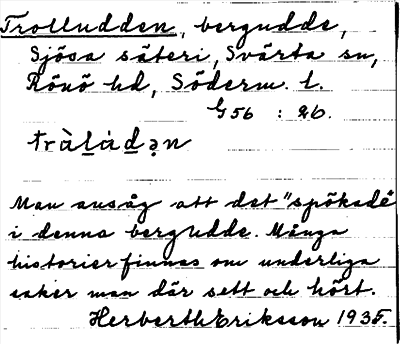 Trolludden, bergudde,
Sjösa säteri, Svärta sn,
Rönö hd, Söderm. l.
G 56 : 26.
tràl̲ȧd̲ən
Man ansåg att det "spökade"
i denna bergudde. Många
historier finnas om underliga
saker man där sett och hört.
Herberth Eriksson 1935.